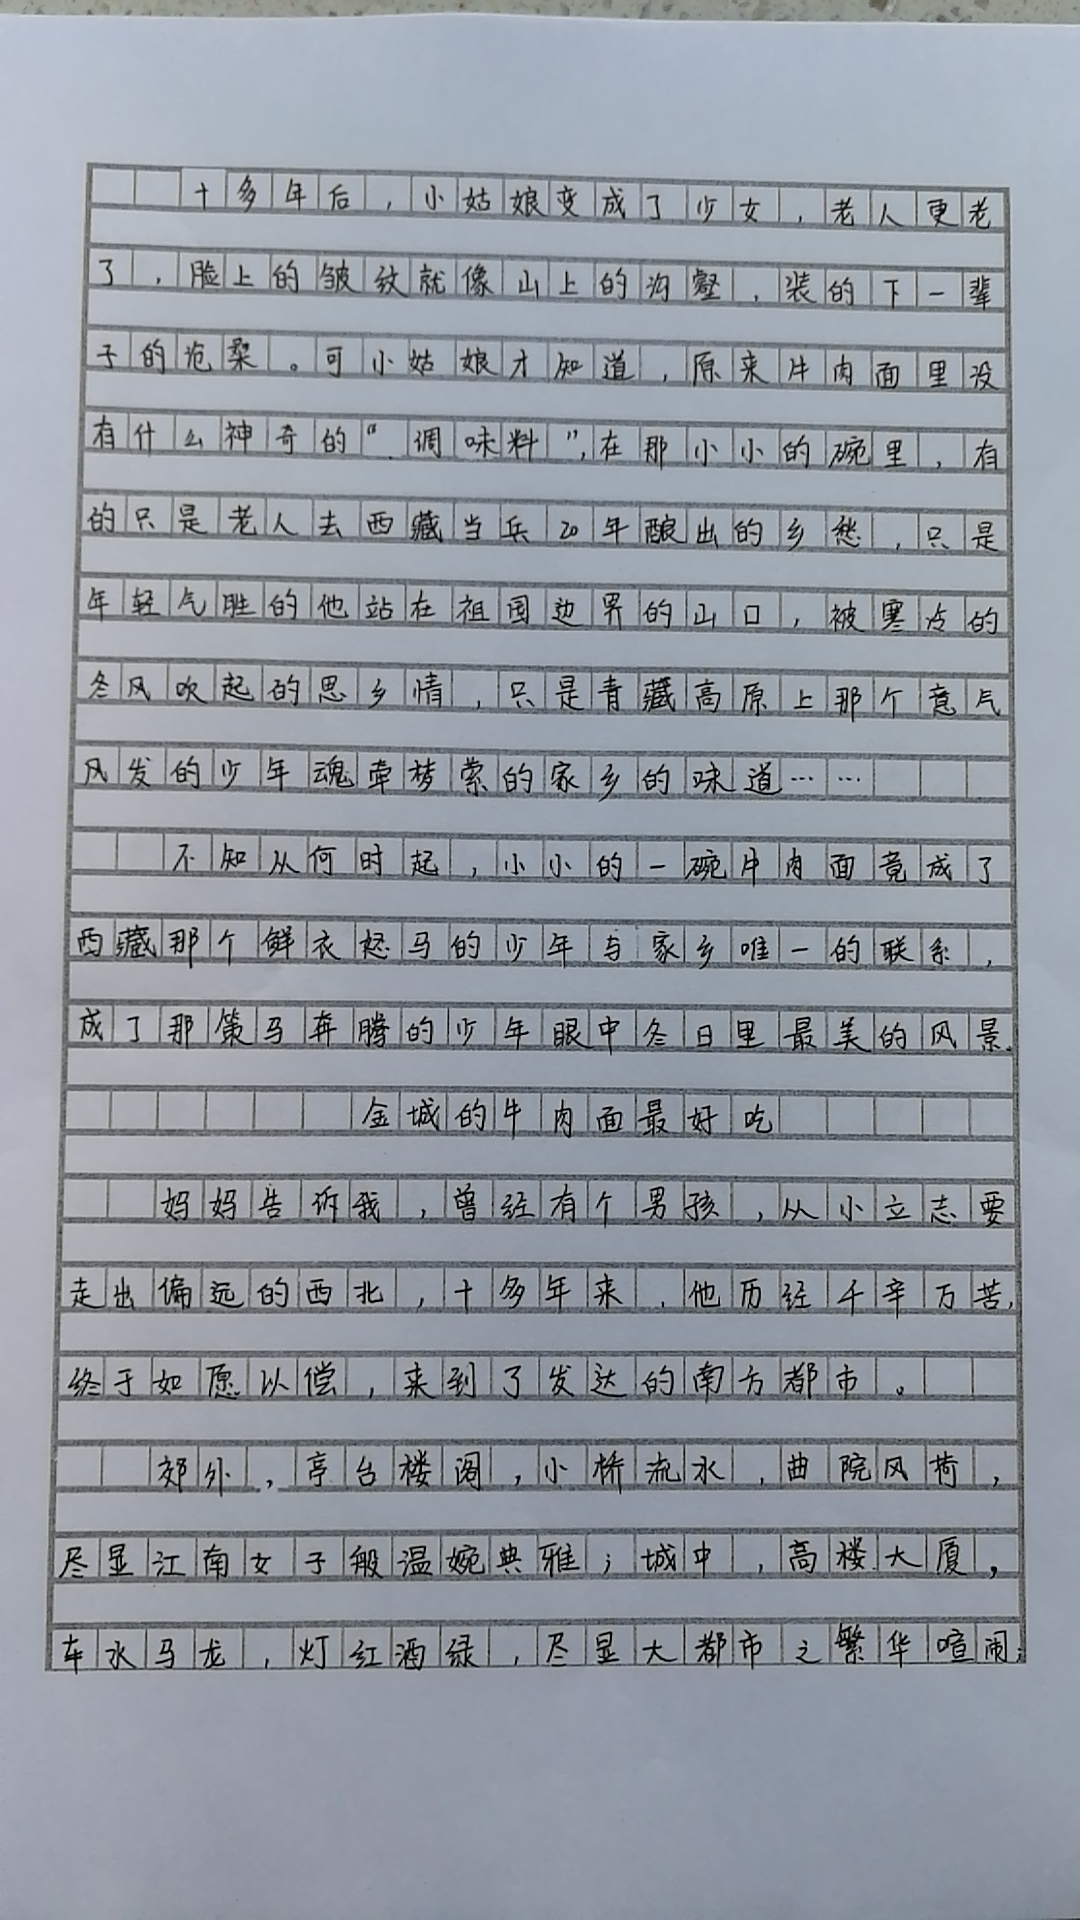 十多年后，小姑娘变成了少女，老人更老
了，脸上的皱纹就像山上的沟壑，装的下一辈
子的沧桑。可小姑娘才知道，原来片肉面里没
有什么神奇的“调味料”，在那小小的碗里，有
的只是老人去西藏当兵20年酿出的乡愁，只是
年轻气胜的他站在祖国边界的山口，被寒冷的
冬风吹起的思乡情，只是青藏高原上那个意气
风发的少年魂牵梦萦的家乡的味道……
不知从何时起，小小的一碗片肉面竟成了
西藏那个鲜衣怒马的少年与家乡唯一的联系，
成了那策马奔腾的少年眼中冬日里最美的风景。
金城的牛肉面最好吃
妈妈告诉我，曾经有个男孩，从小立志要
走出偏远的西北，十多年来，他历经千辛万苦，
终于如愿以偿，来到了发达的南方都市。
郊外，亭台楼阁，小桥流水，曲院风荷，
尽显江南女子般温婉典雅；城中，高楼大厦，
车水马龙，灯红酒绿，尽显大都市之繁华喧闹；